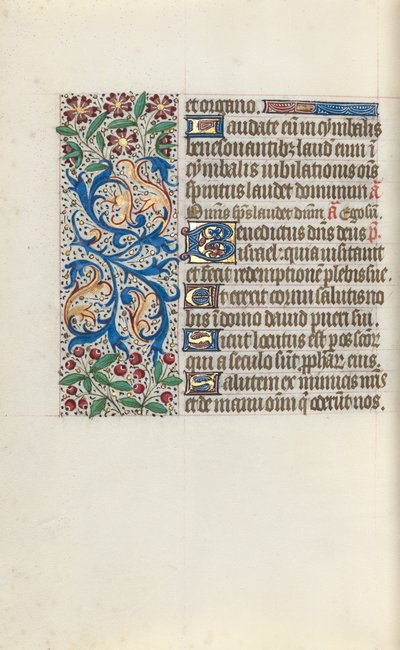 et organo.
Laudate eū in cymbalis
benesonantibz laud eum ī
cymbalis iubilationis oīs
spiritus laudet dominum ā
Omīs sp̄s laudet dn̄m ā Ego sū.
Benedictus dn̄s deus p̄.
israel: quia uisitauit
et fecit redemptionē plebis sue.
Et erexit cornu salutis no
bis ī domo dauid pueri sui.
Sicut locutus est p os scōr
qui a seculo sūt pphar eius
Salutem ex inimicis nr̄is
et de manu oīm q̄ oderūt nos.